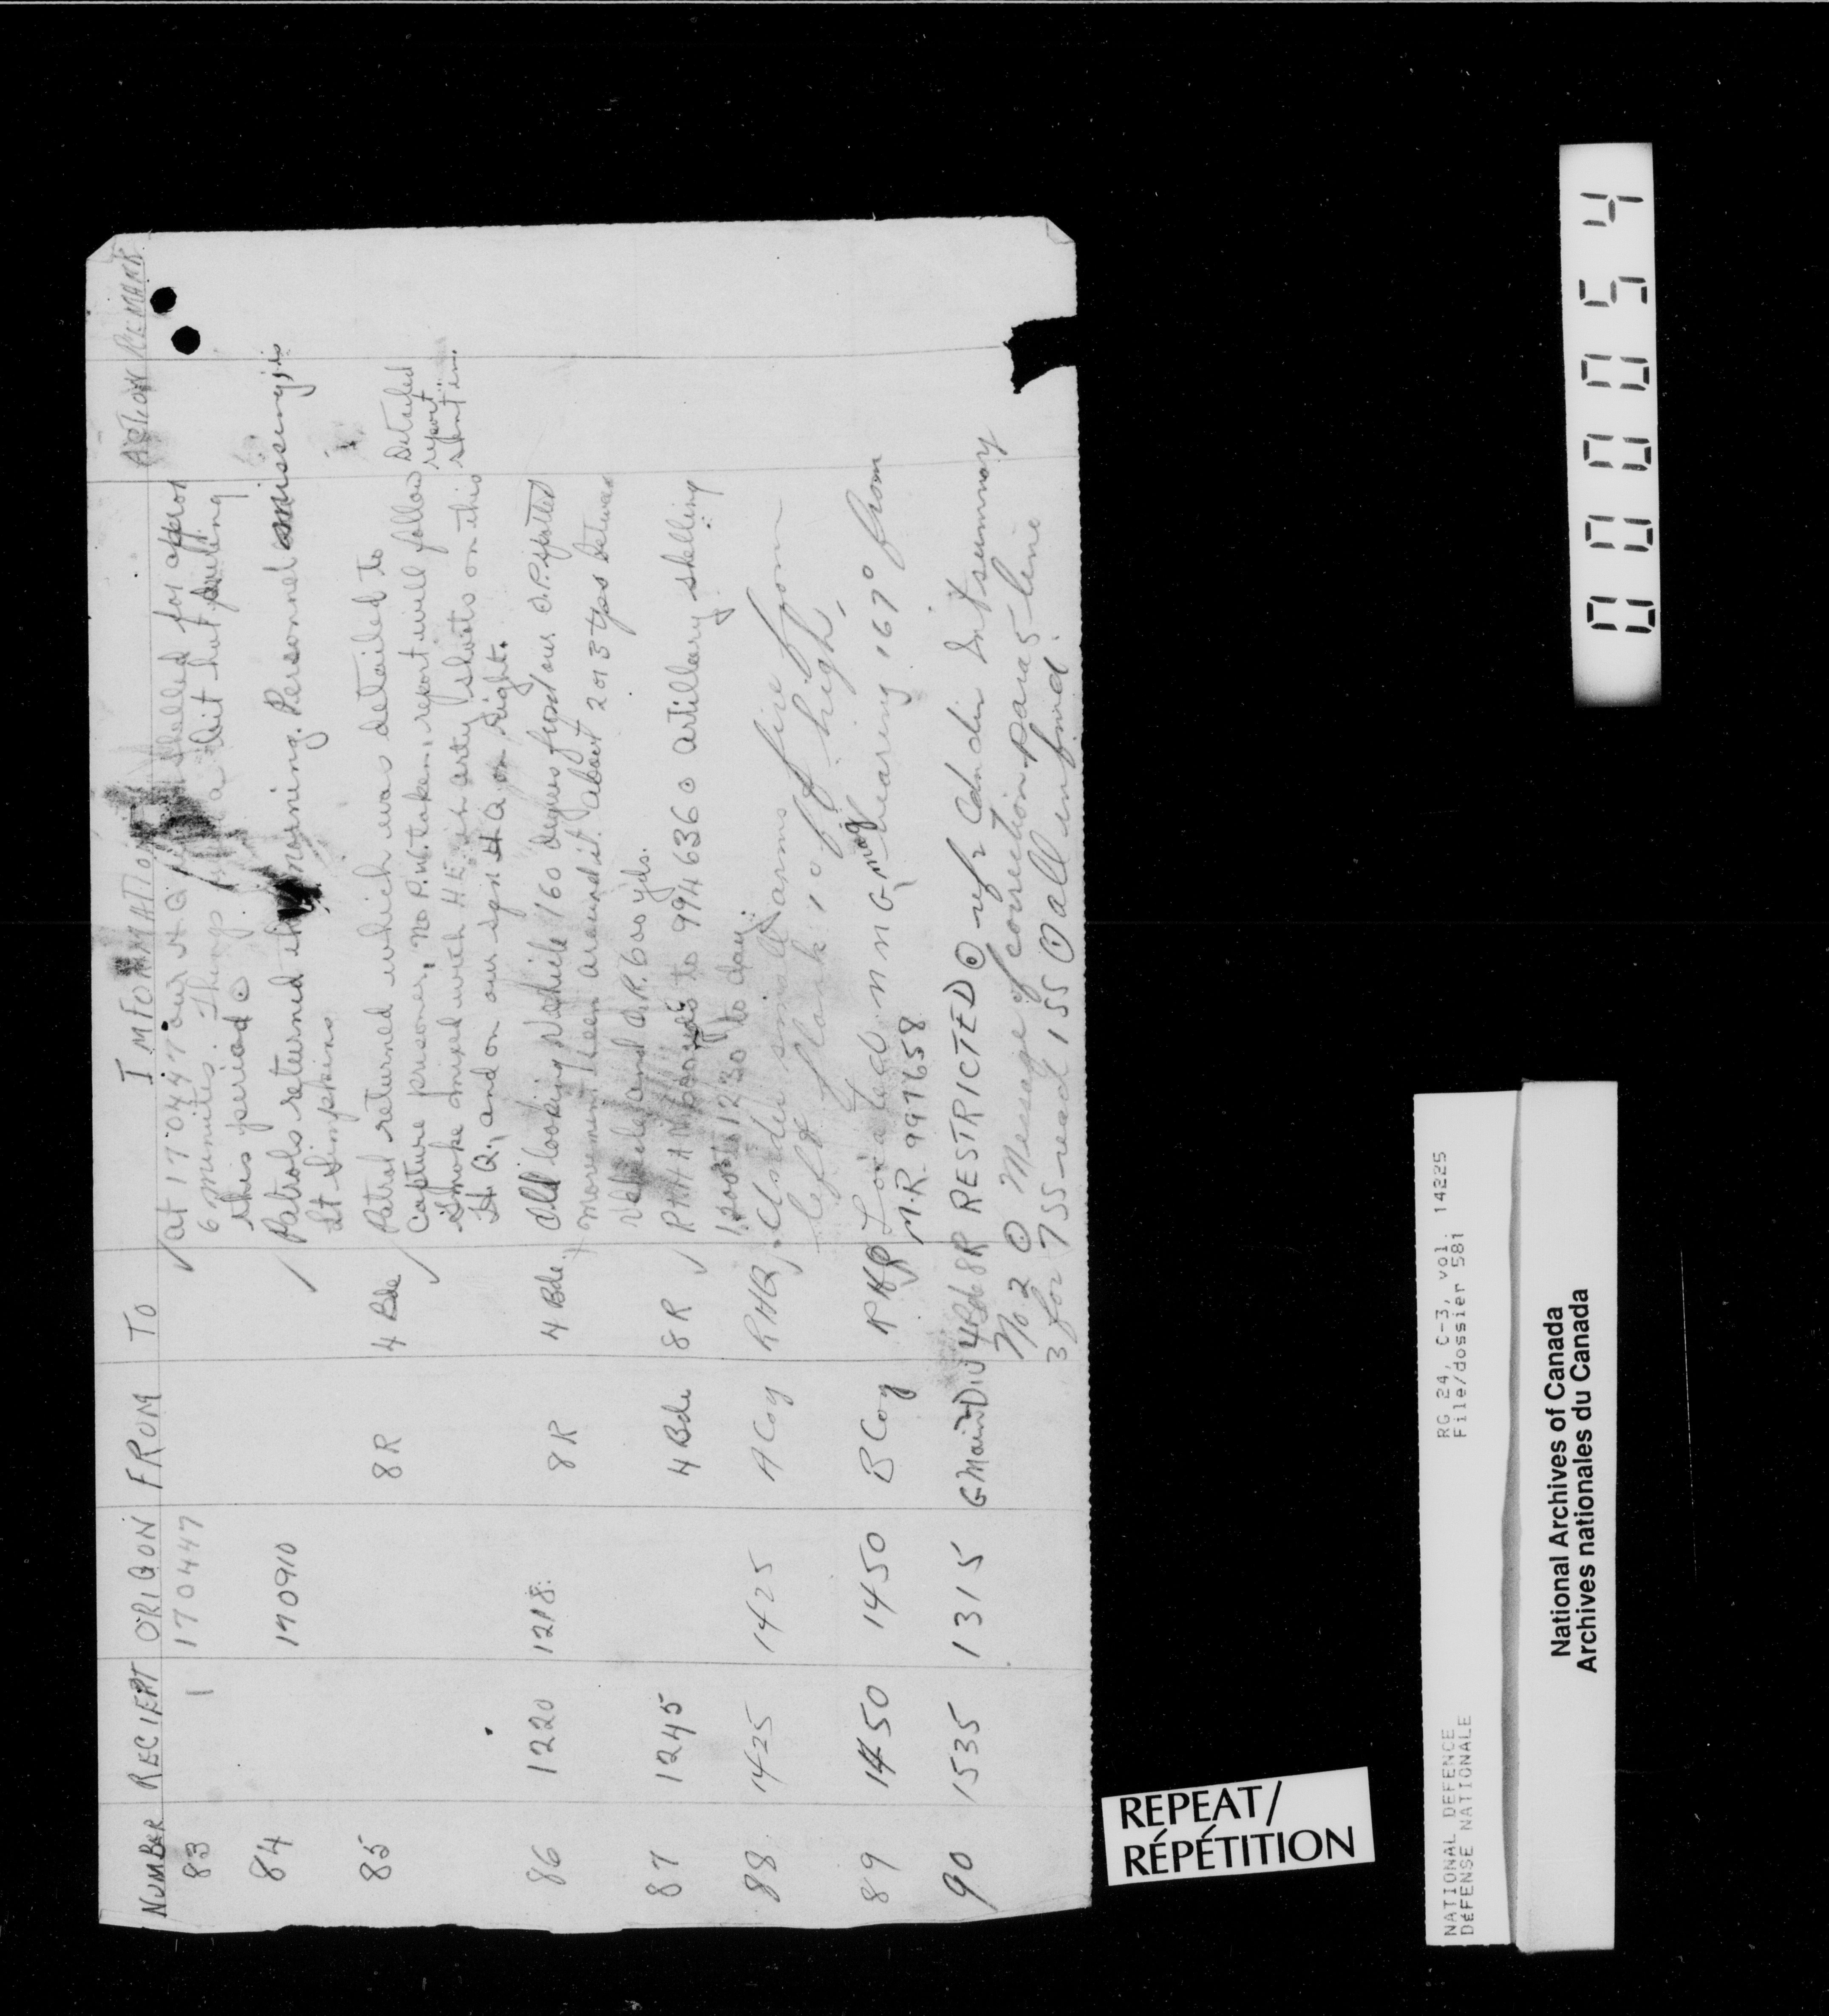 NUMBER RECIEPT ORIGON FROM TO INFORMATION ACTION REMARK
83 170447 at 170447 our H.Q. shelled for approx
6 minutes. a bit hot during
this period
84 170910 Patrols returned morning. Personnel missing is
Lt Simpkins
85 8R 4 Bde Patrol returned which was detailed to
capture prisoner, no P.W. taken, report will follow Detailed report sent in.
Smoke mixed with H.E. in arty shoots on this
H.Q. and on our H.Q. on right.
86 1220 1218 8R 4 Bde Old looking Vehicle 160 degrees from our O.P. reported
movement been around it. about 2 or 3 tps between
Vehicle and O.P. 600 yds.
87 1245 4 Bde 8R 994636 artillery shelling
1200 1230 to day.
88 1425 1425 A Coy RHQ Under small arms fire from
left flank 10 of high,
89 1450 1450 B Coy RHQ Located M M G mag bearing 167° from
M.R. 997658
90 1535 1315 G Main Div 4 Bde 8R RESTRICTED ⊙ ref 2 Cdn div Int summary
No 2 ⊙ Message of correction para 5 line
3 for 755 read 155 ⊙ all informed.
REPEAT/
RÉPÉTITION
NATIONAL DEFENCE RG 24, C-3, vol. 14225
DÉFENSE NATIONALE File/dossier 581
National Archives of Canada
Archives nationales du Canada
000054